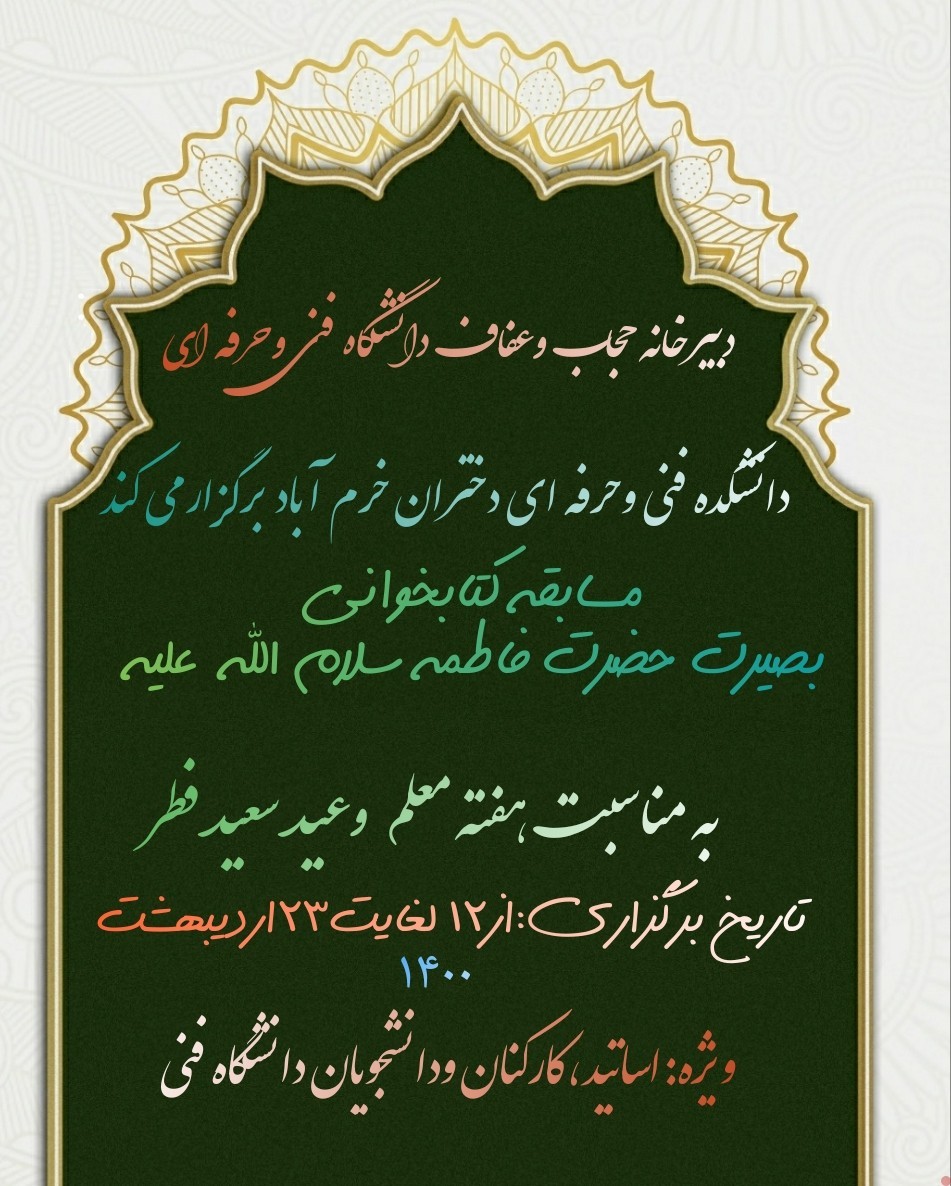 دبیرخانه حجاب وعفاف دانشگاه فنی و حرفه ای
دانشکده فنی وحرفه ای دختران خرم آباد برگزارمی کند
مسابقه کتابخوانی
بصیرت حضرت فاطمه سلام الله علیه
به مناسبت هفته معلم وعید سعید فطر
تاریخ برگزاری:از۱۲ لغایت۲۳اردیبهشت
۱۴۰۰
ویژه: اساتید، کارکنان ودانشجویان دانشگاه فنی